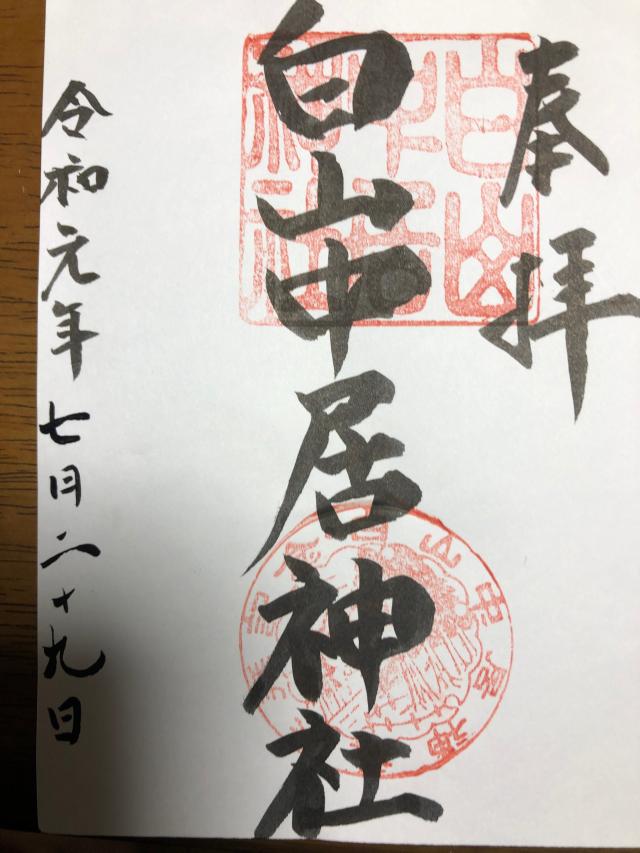 奉拝
白山中居神社
白山
中居
神社
令和元年七月二十九日